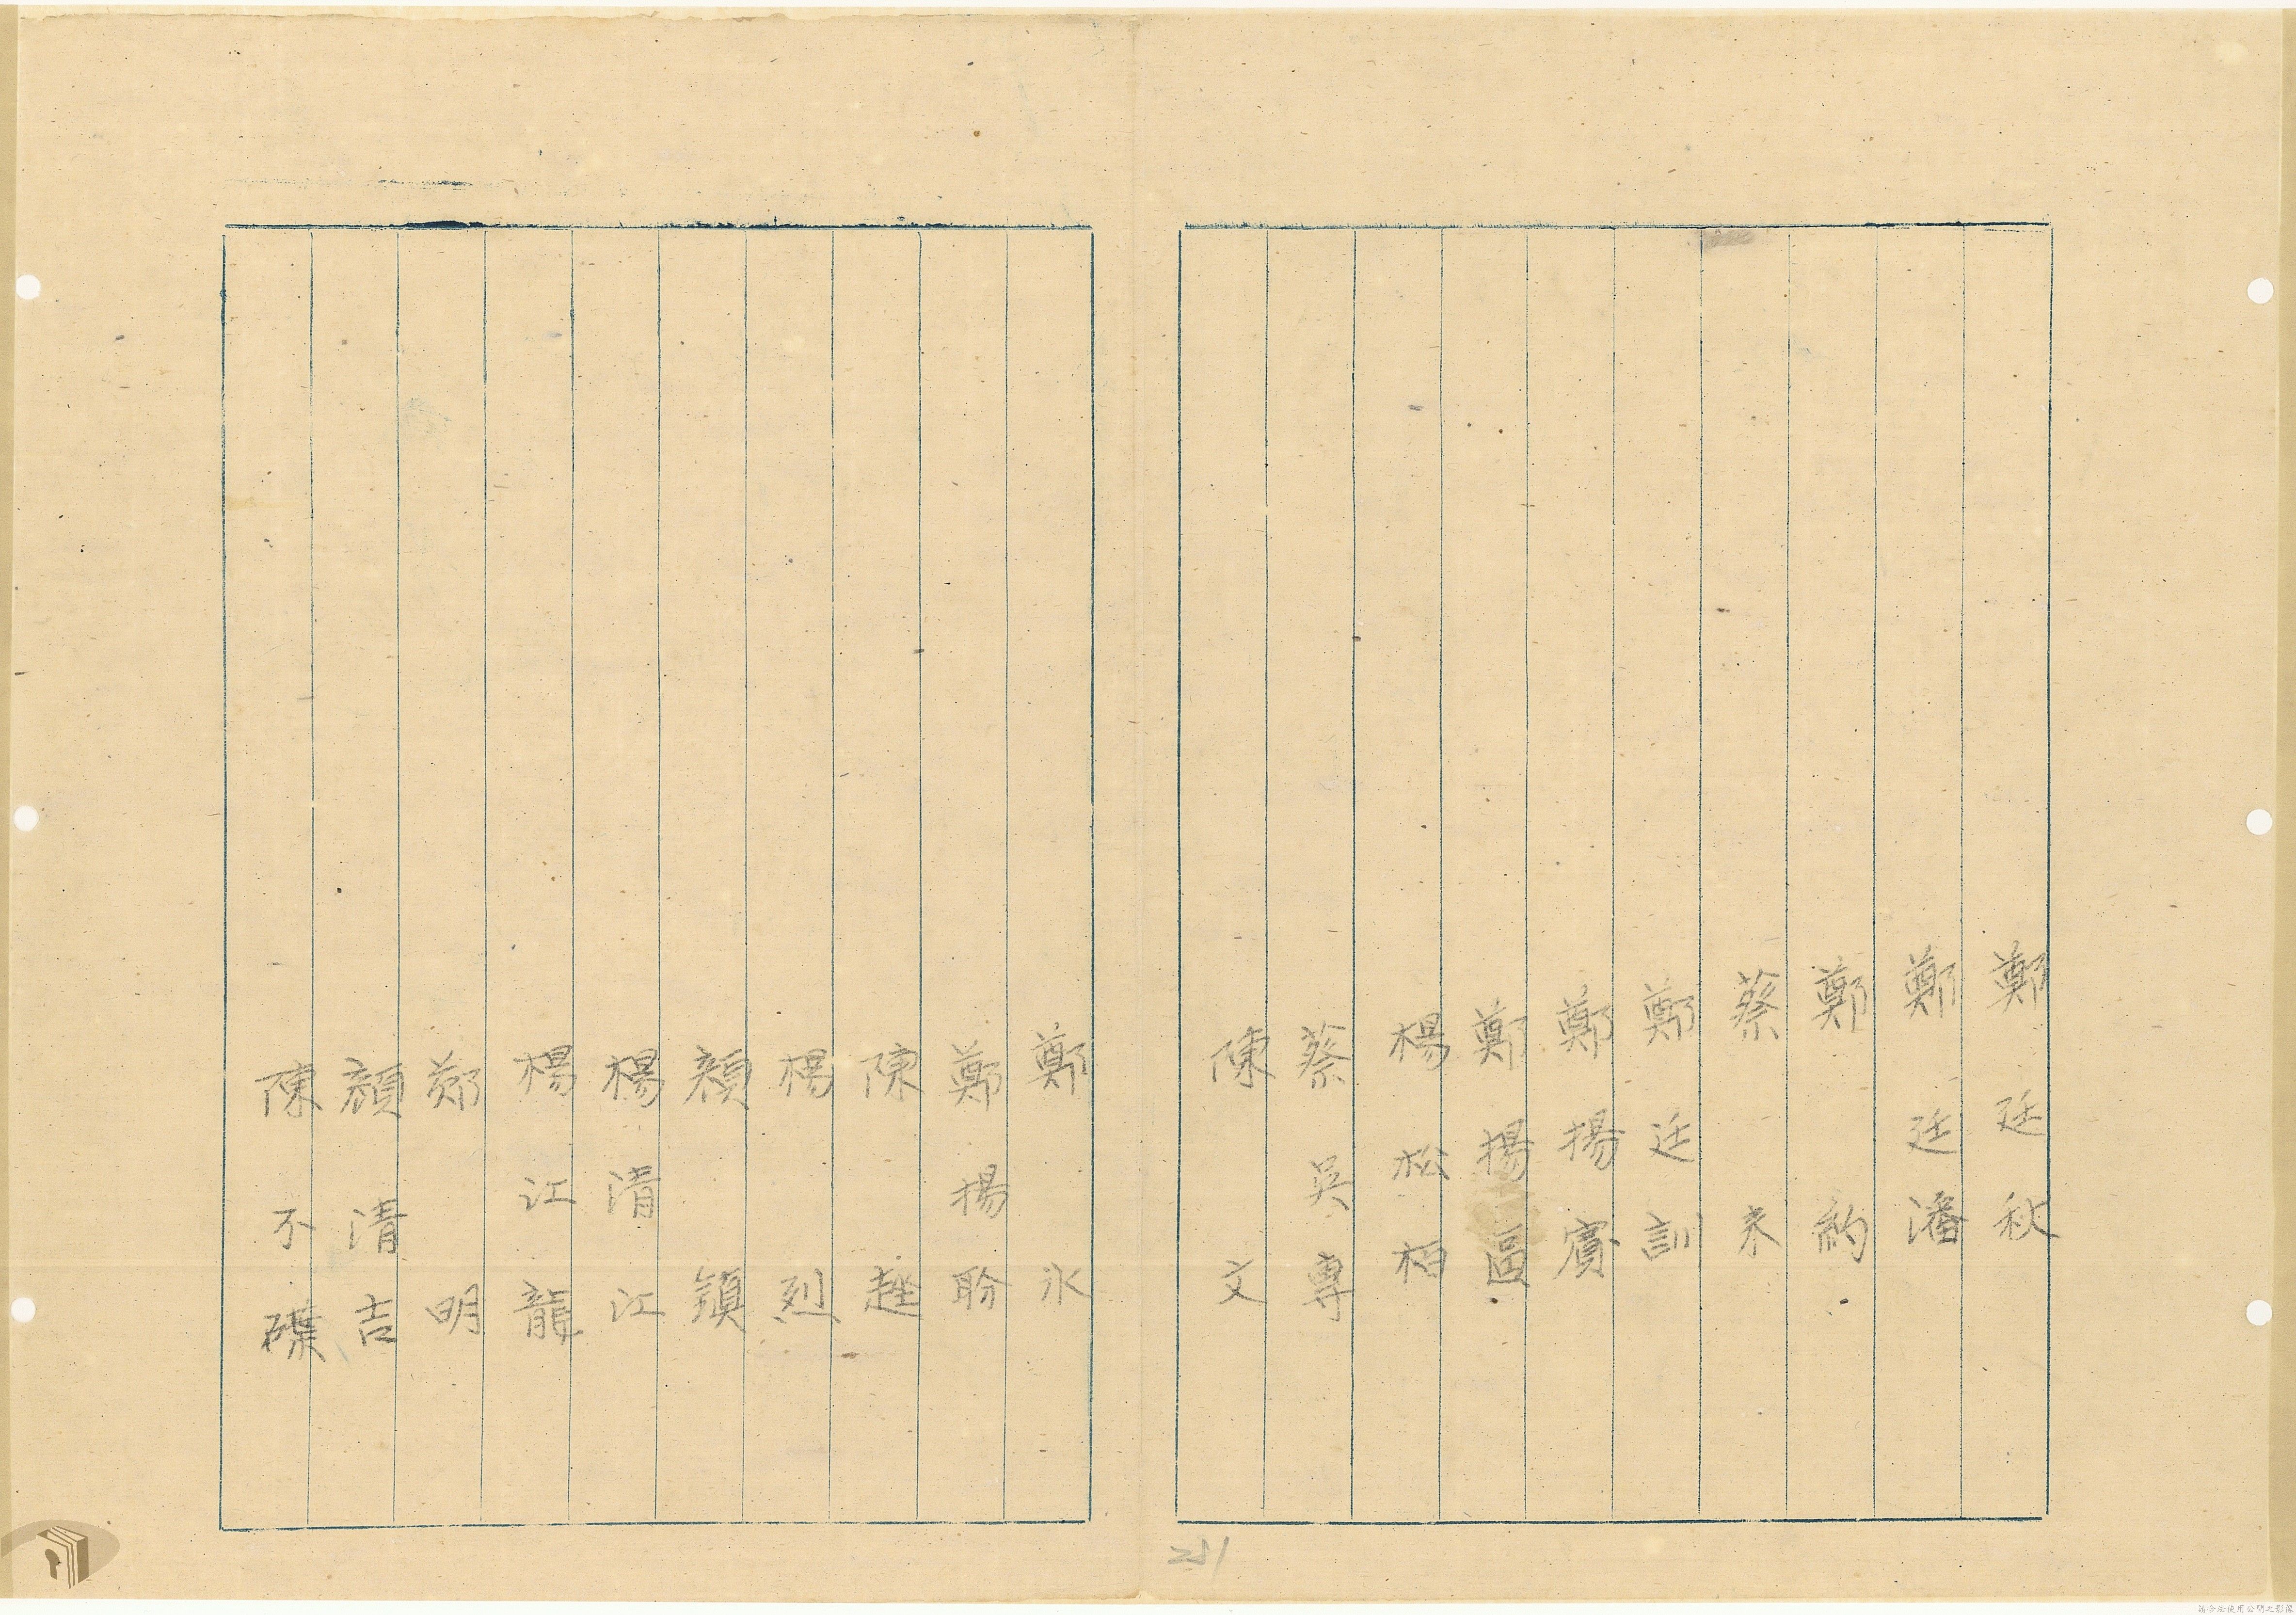 鄭廷秋
鄭廷潘
鄭約
蔡未
鄭廷訓
鄭揚賓
鄭揚區
楊松柏
蔡吳專
陳文
鄭氷
鄭揚聆
陳趖
楊烈
顏鎮
楊清江
楊江龍
鄭明
顏清吉
陳不磔
251
請合法使用公開之影像